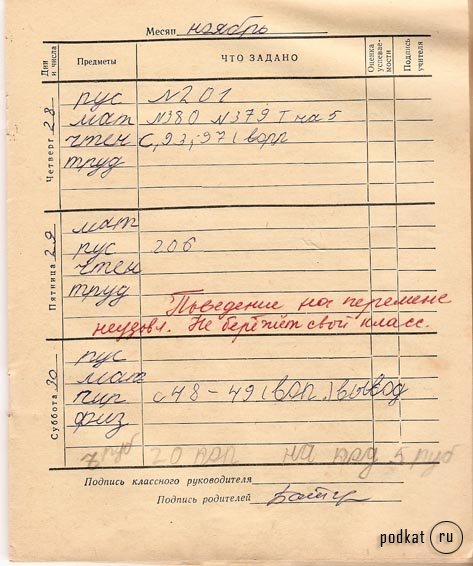 Месяц ноябрь
Дни и числа Предметы ЧТО ЗАДАНО Оценка успевае-мости Подпись учителя
Четверг 28
рус №201
мат №380 №379 Т на 5
чтен С, 93, 97 (вопр
труд
Пятница 29
мат
рус 206
чтен
труд
Поведение на перемене
неудовл. Не бережёт свой класс.
Суббота 30
рус
мат
пир с 48-49 (воп.) вывод
физ
руб 20 коп на 5 руб
Подпись классного руководителя
Подпись родителей
podkat ru